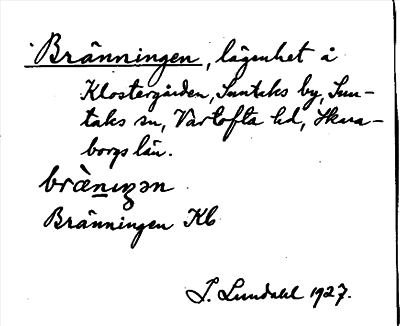 Bränningen, lägenhet å
Klostergården, Suntaks by, Sun-
taks sn, Vartofta hd, Skara-
borgs län.
Bränningen Kb
J. Lundahl 1927.